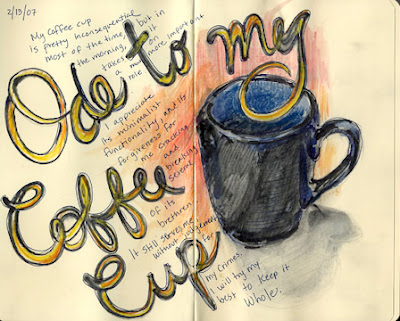 2/13/07
My Coffee cup
is pretty inconsequential
most of the time, but in
the morning, it
takes on
a much more important
role
Ode to my
Coffee
Cup
I appreciate
its minimalist
functionality, and its
forgiveness for
me cracking
and
breaking
several
of its
brethren.
It still serves me
without judgement
for
my crimes,
I will try my
best to keep it
whole.